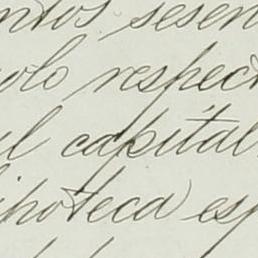 ntos sesen
olo respect
ul capital
ipoteca esp